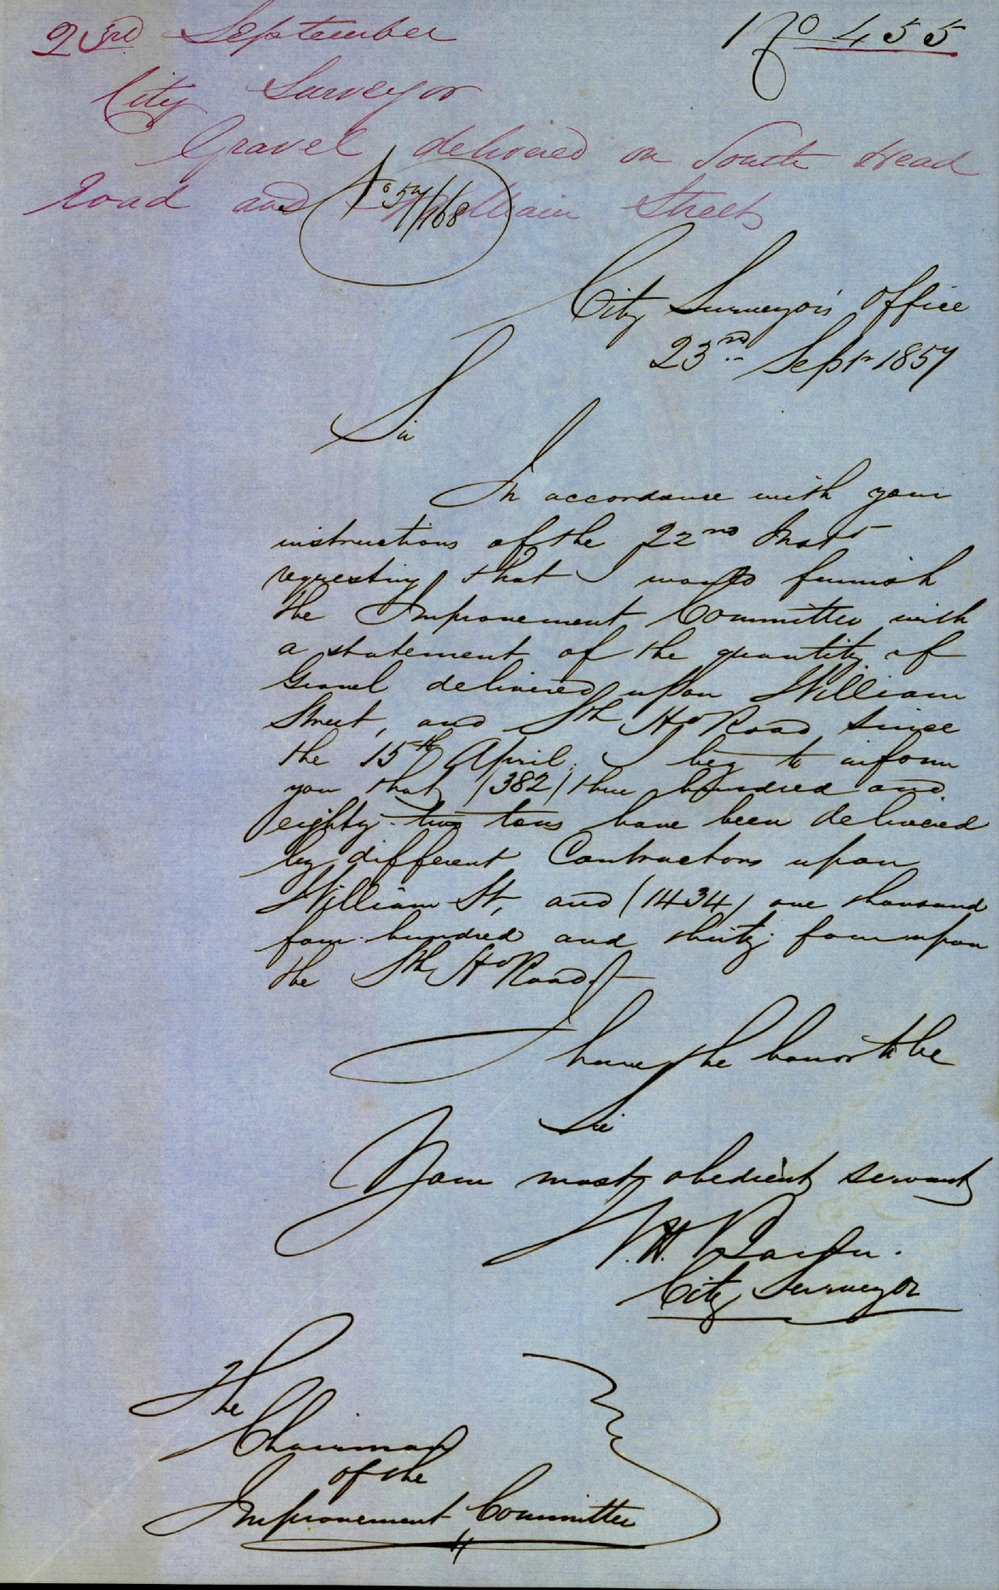 23rd September
No 455
City Surveyor
Gravel delivered on South Head
Road and William Street
No 57/1168
City Surveyor's Office
23rd Septr 1857
Sir
In accordance with your
instructions of the 22nd Inst
requesting that I would furnish
the Improvement Committee with
a statement of the quantity of
Gravel delivered upon William
Street, and Sth Hd Road since
the 15th April, I beg to inform
you that (382) three hundred and
eighty-two tons have been delivered
by different Contractors upon
William St, and (1434) one thousand
four hundred and thirty four upon
the Sth Hd Road.
I have the honor to be
Sir
Your most obedient servant
W.H.
City Surveyor
The
Chairman
of the
Improvement Committee